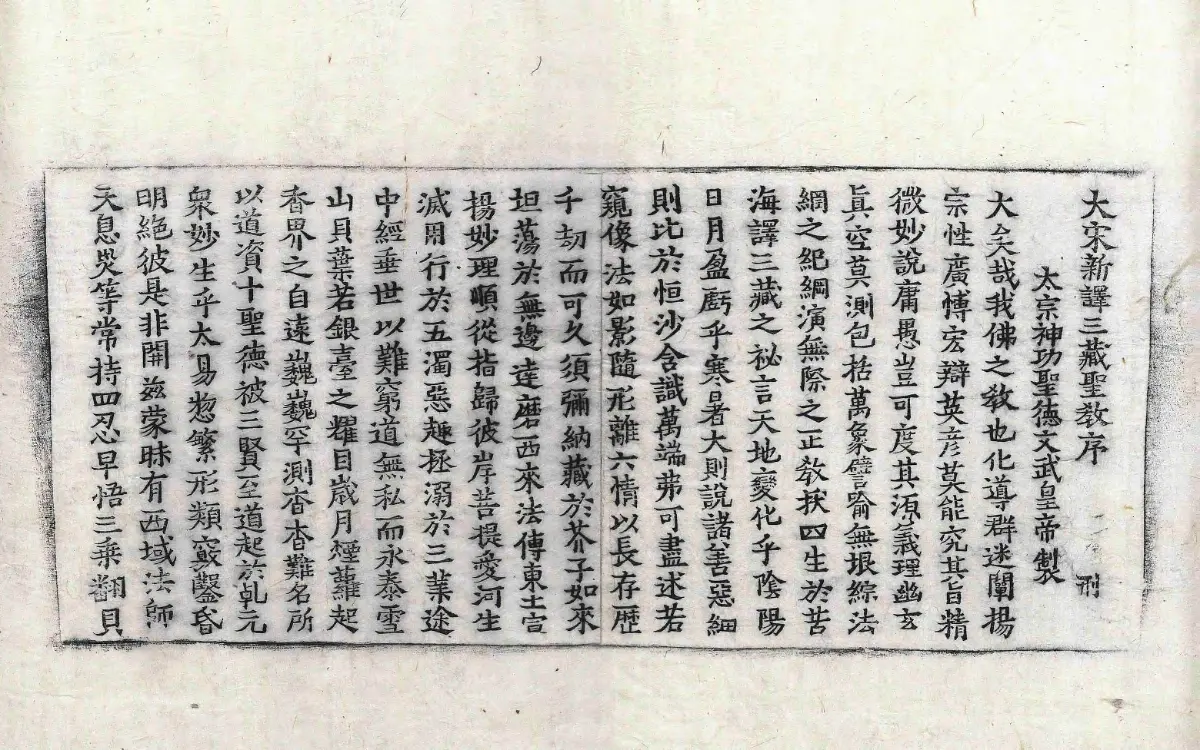 大宋新譯三藏聖教序　刑
太宗神功聖德文武皇帝製
大矣哉我佛之教也化導群迷闡揚
宗性廣愽宏辯英彦莫能究其旨精
微妙說庸愚豈可度其源義理幽玄
真空莫測包括萬象譬喻無垠綜法
網之紀綱演無際之正教拔四生於苦
海譯三藏之祕言天地變化乎陰陽
日月盈虧乎寒暑大則說諸善惡細
則比於恒沙含識萬端弗可盡述若
窺像法如影隨形離六情以長存歷
千劫而可久須彌納藏於芥子如來
坦蕩於無邊達磨西來法傳東土宣
揚妙理順從指歸彼岸菩提愛河生
滅用行於五濁惡趣拯溺於三業途
中經垂世以難窮道無私而永泰雪
山貝葉若銀臺之耀目歲月煙蘿起
香界之自遠巍巍罕測杳杳難名所
以道資十聖德被三賢至道起於乹元
衆妙生乎太易惣繁形類竅鑿昏
明絶彼是非開兹蒙昧有西域法師
天息災等常持四忍早悟三乘翻貝